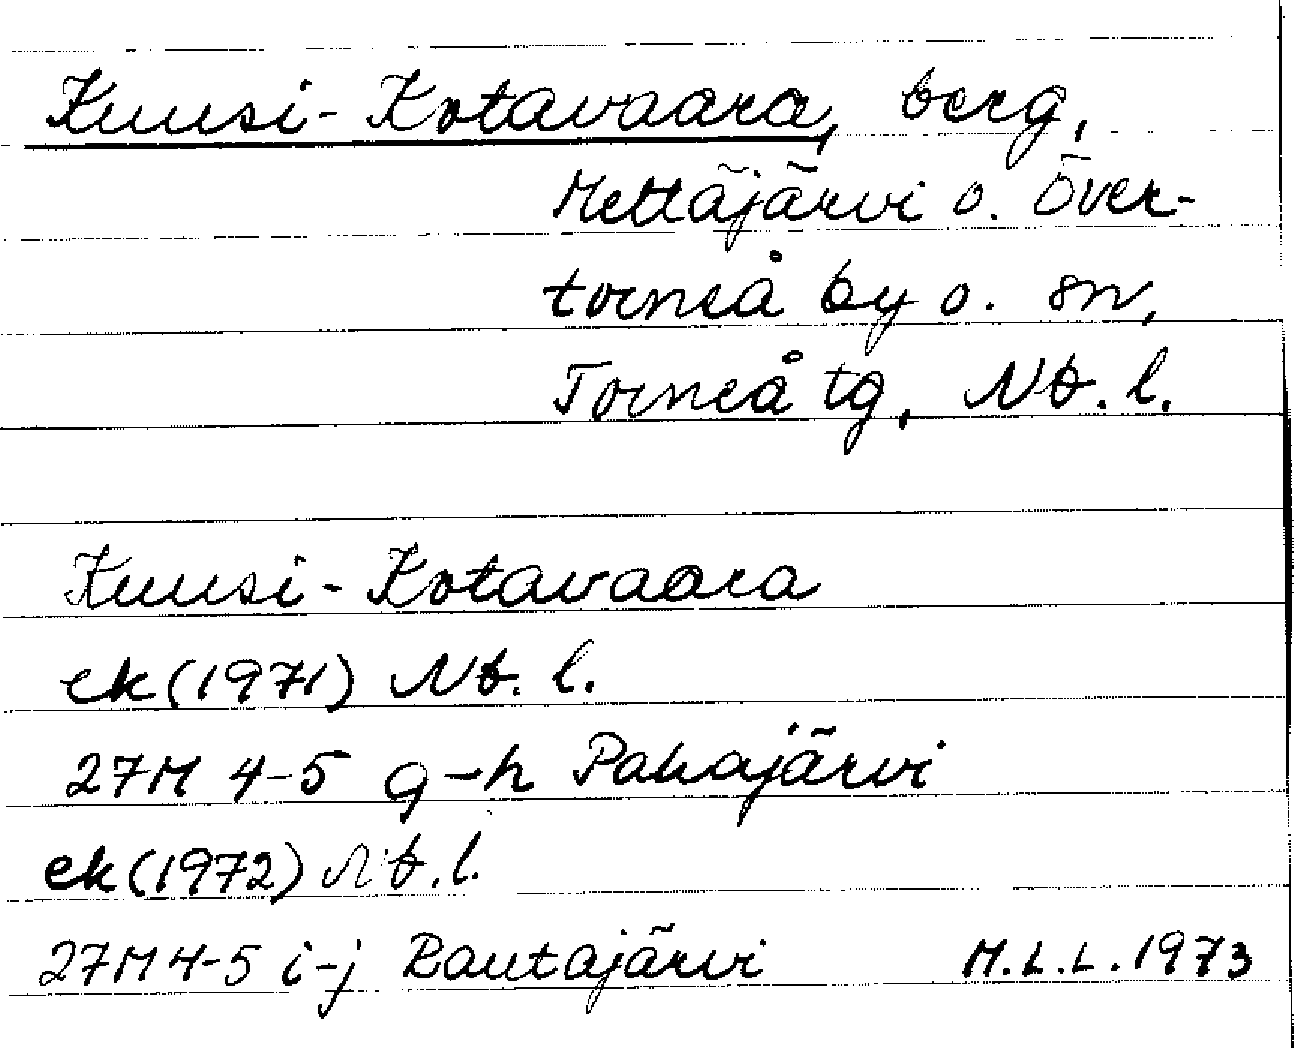 Kuusi-Kotavaara, berg,
Mettäjärvi o. Över-
torneå by o. sn,
Torneå tg, Nb. l.
Kuusi-Kotavaara
ek (1971) Nb. l.
27M 4-5 g-h Pahajärvi
ek (1972) Nb. l.
27M 4-5 i-j Rautajärvi M.L.L. 1973